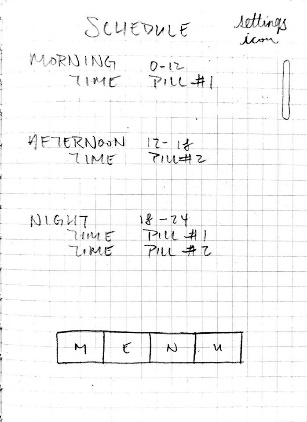 SCHEDULE
settings
icon
MORNING 0-12
TIME PILL #1
AFTERNOON 12-18
TIME PILL #2
NIGHT 18-24
TIME PILL #1
TIME PILL #2
M E N U